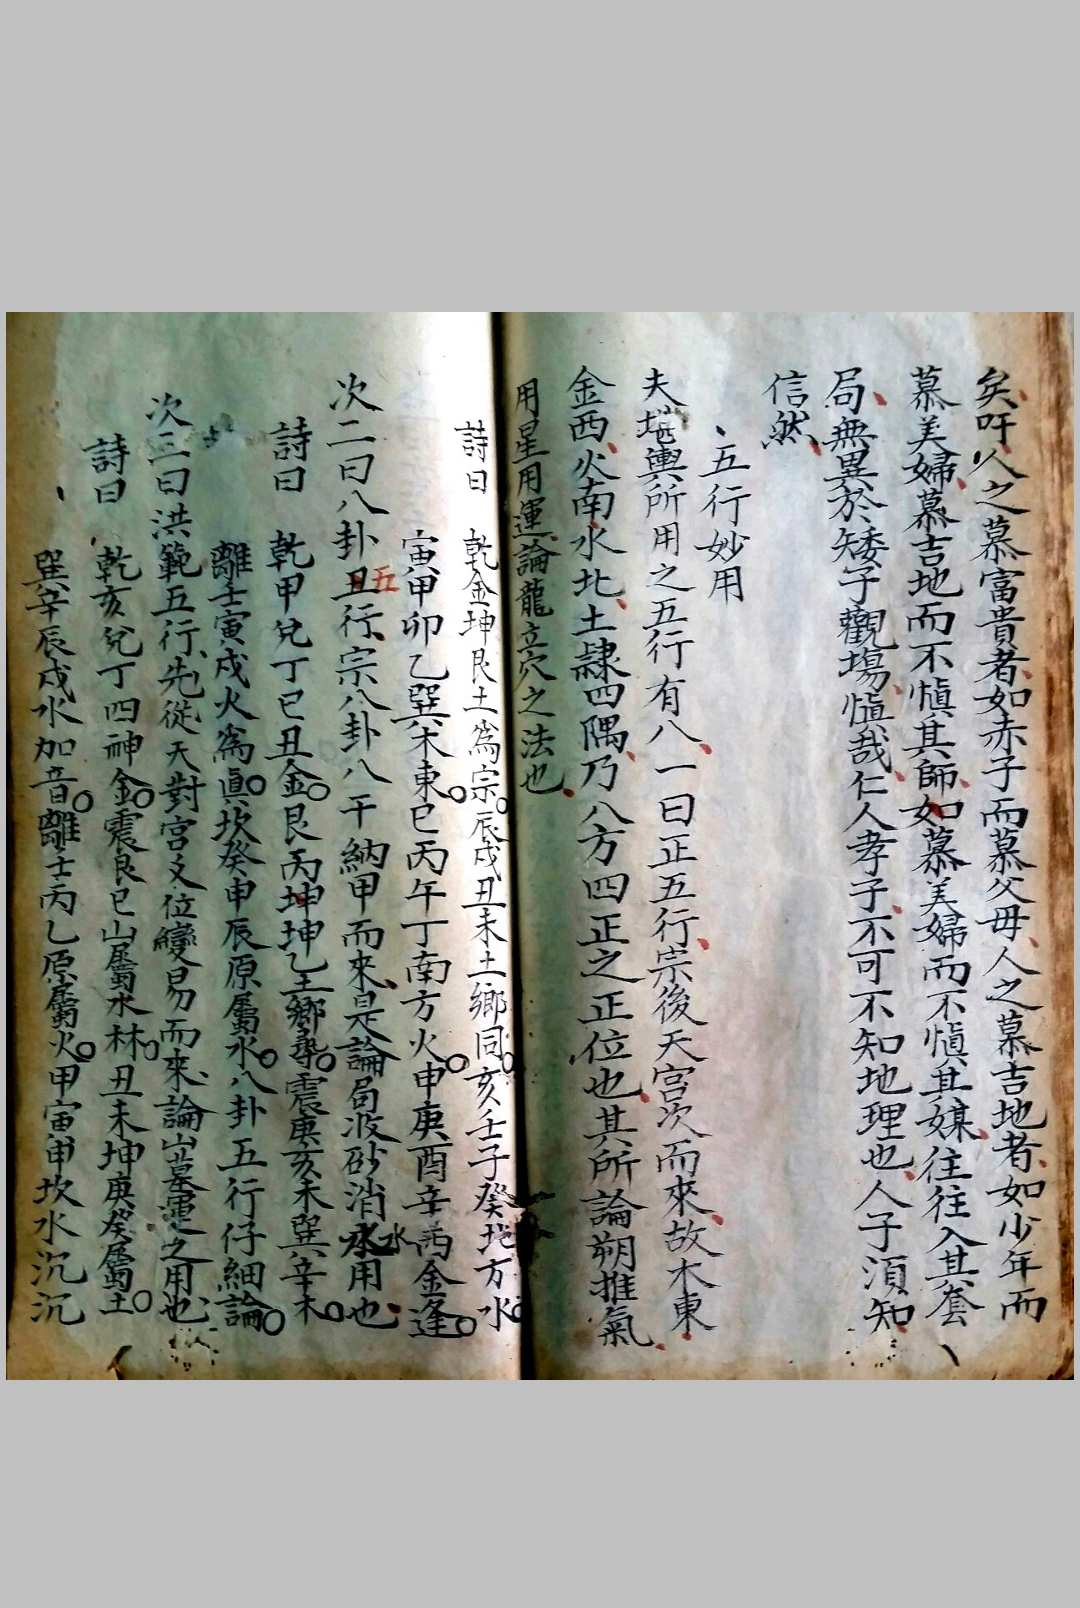 矣吁人之慕富貴者如赤子而慕父母人之慕吉地者如少年而
慕美婦慕吉地而不愼其師如慕美婦而不愼其媒往往入其套
局無異於矮子觀塲愼哉仁人孝子不可不知地理也人子須知
信然
五行妙用
夫堪輿所用之五行有八一曰正五行宗後天宮次而來故木東
金西火南水北土隷四隅乃八方四正之正位也其所論朔推氣
用星用運論龍立穴之法也
詩曰 乾金坤艮土爲宗辰戌丑未土鄉同亥壬子癸北方水
寅甲卯乙巽木東巳丙午丁南方火申庚酉辛兩金逢
次二曰八卦五行宗八卦八干納甲而來是論局波砂消水用也
詩曰 乾甲兌丁巳丑金艮丙坤坤乙土鄉尋震庚亥未巽辛木
離壬寅戌火爲眞坎癸申辰原屬水八卦五行仔細論
次三曰洪範五行先從天對宮爻位變易而來論山墓運之用也
詩曰 乾亥兌丁四神金震艮巳山屬木林丑未坤庚癸屬土
巽辛辰戌水加音離壬丙乙原屬火甲寅申坎水沉沉